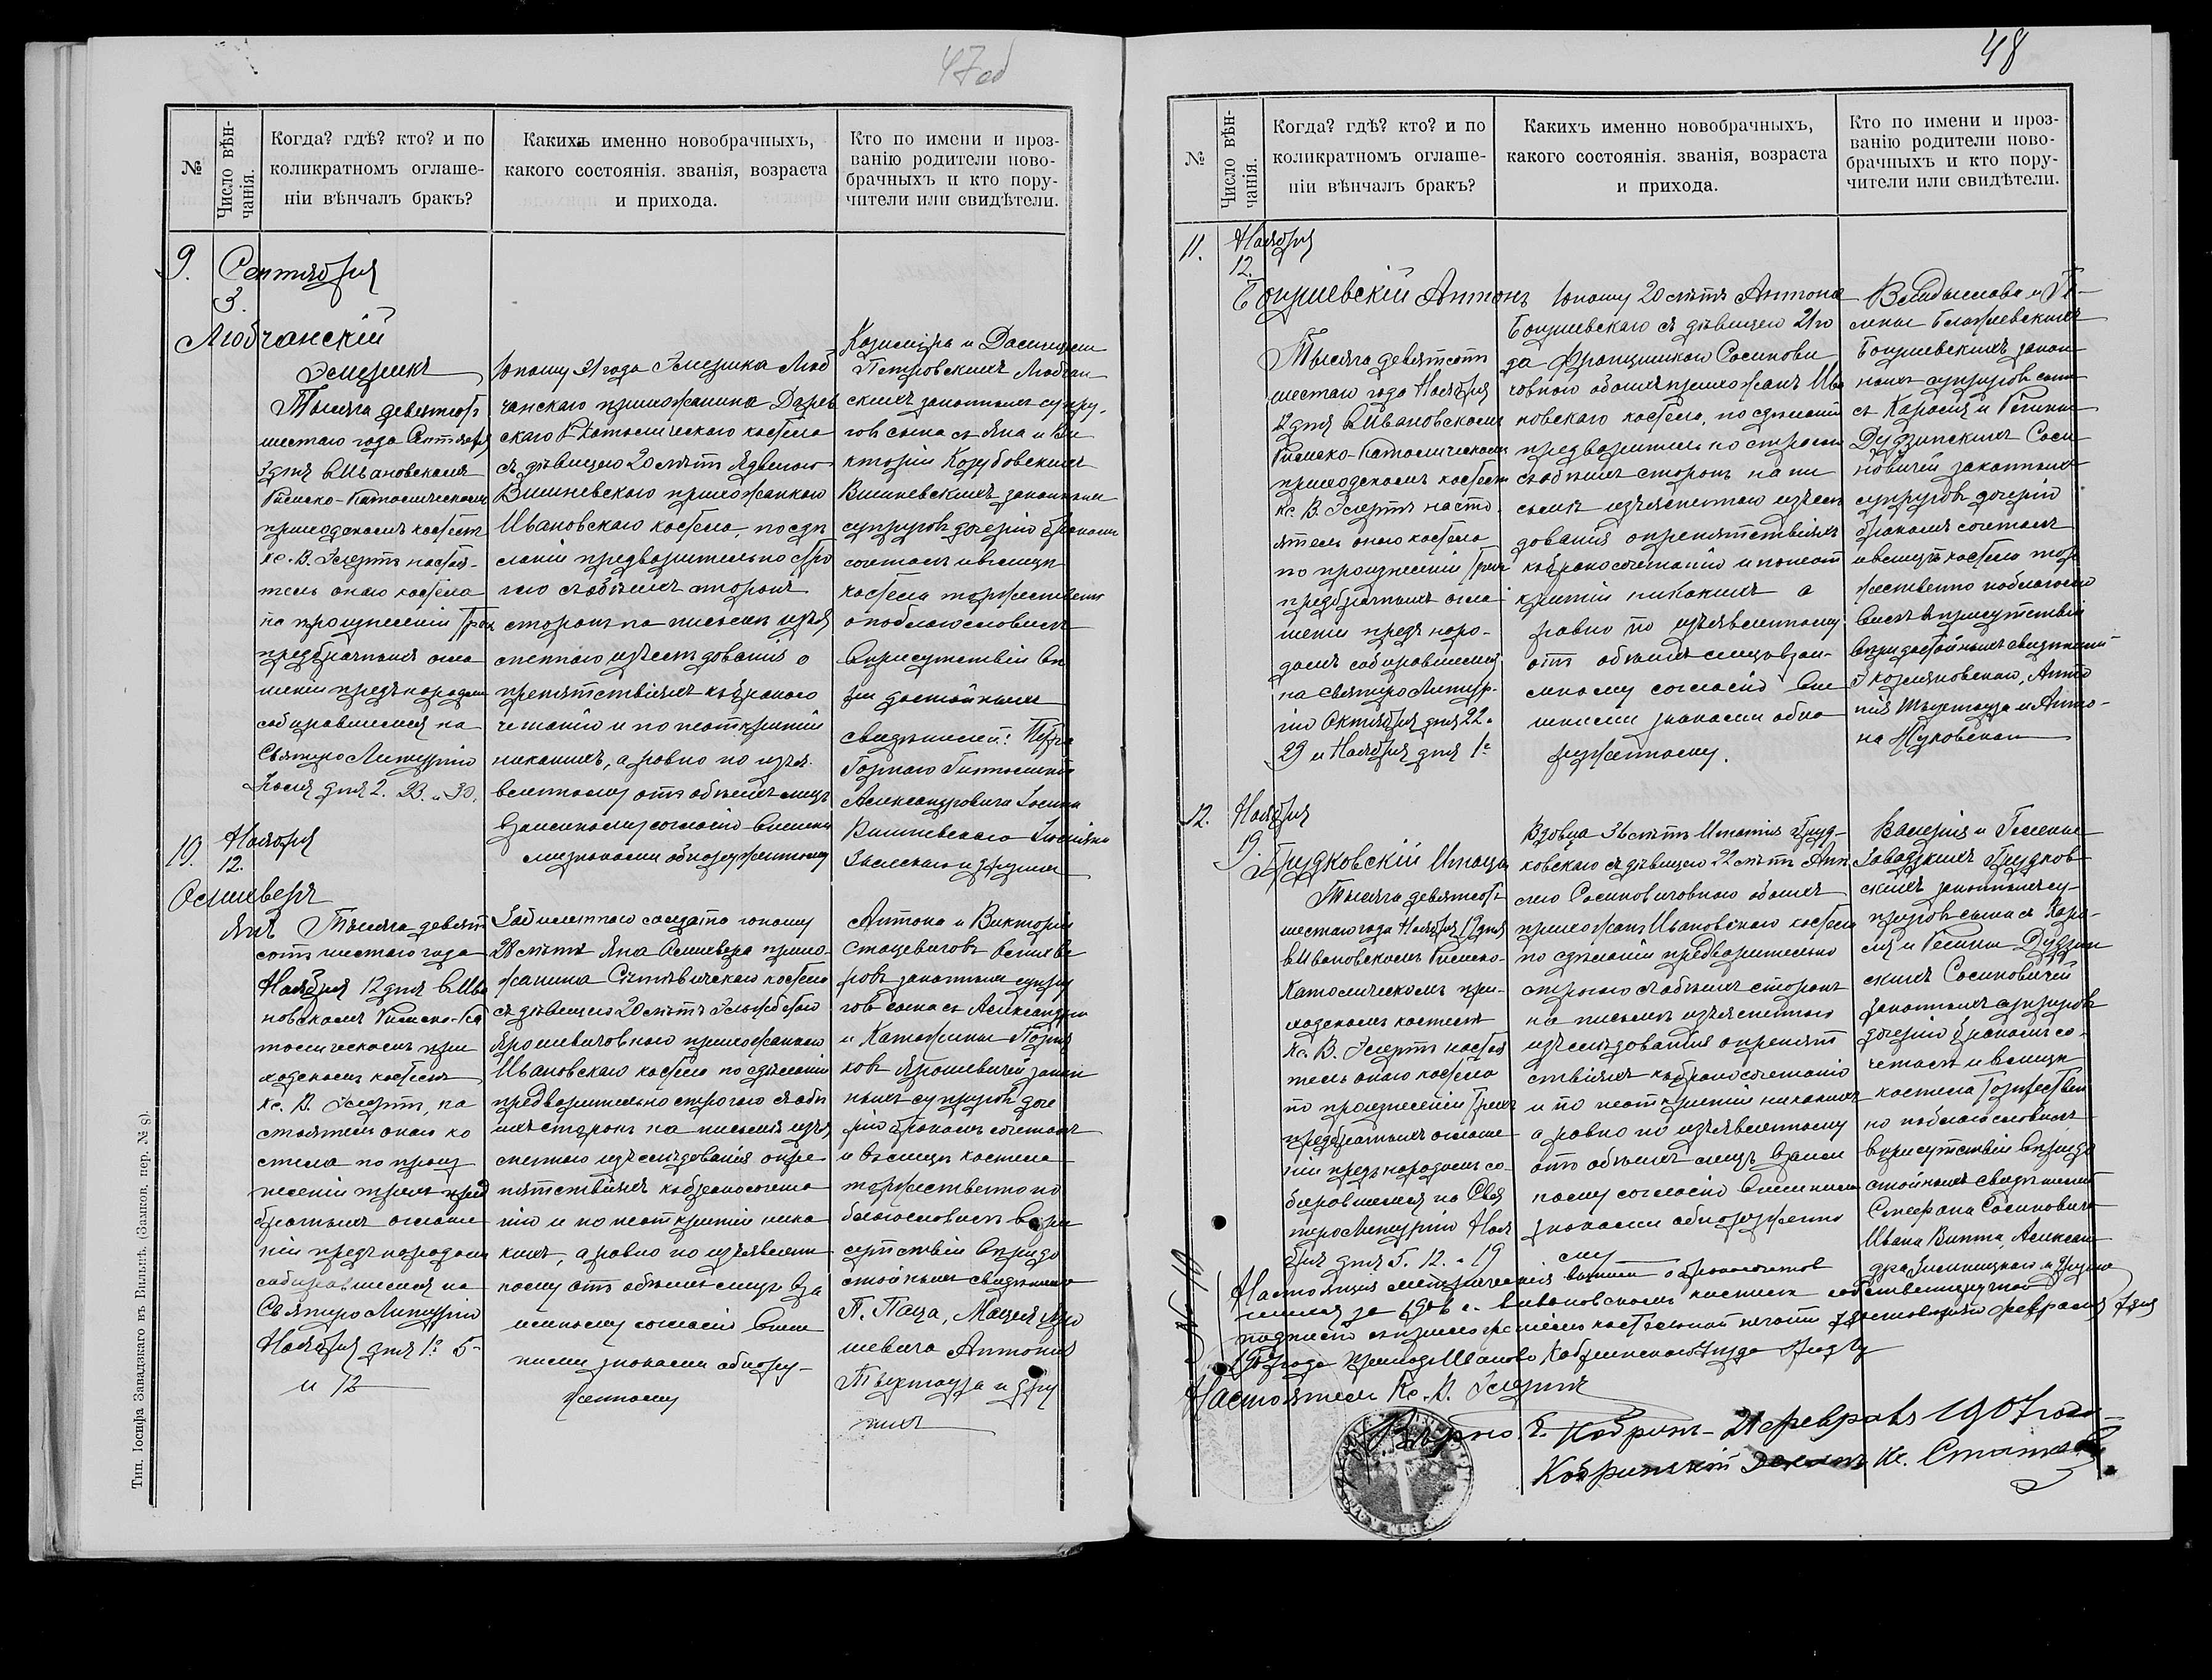 47 об
№
Число вѣн-
чанія.
Когда? гдѣ? кто? и по
коликратномъ оглаше-
ніи вѣнчалъ бракъ?
Какихъ именно новобрачныхъ,
какого состоянія. званія, возраста
и прихода.
Кто по имени и проз-
ванію родители ново-
брачныхъ и кто пору-
чители или свидѣтели.
9.
Сентября
3.
Любчанскій
Эмерикъ
Тысяча девятьсотъ
шестаго года Сентября
3 дня въ Ивановскомъ
Римско-Католическомъ
приходскомъ костелѣ
Кс. В. настоя-
тель онаго костела
по произнесеніи трехъ
предбрачныхъ огла
шеніи предъ народомъ
собиравшемся на
Святую Литургію
дня 2. 23. и 30.
Юношу 21 года Эмерика Люб
чанскаго прихожанина
скаго Р. Католическаго костела
съ дѣвицею 20 лѣтъ Ядвигою
Вишневскою прихожанкою
Ивановскаго костела, по сдѣ
ланіи предварительно стро
гаго съ обѣихъ сторонъ
сторонъ на письмѣ изъя
сненнаго изслѣдованія о
препятствіяхъ къ браково
четанію и по неоткрытіи
никакихъ, а равно по изъя
вленному отъ обѣихъ лицъ
взаимному согласію внѣшни
ми знаками обнаруженному
Казимира и
Петровскихъ Любчан
скихъ законныхъ супру-
говъ сына съ Яна и Ви
кторіи Козубовскихъ
Вишневскихъ законныхъ
супруговъ дочерію бракомъ
сочеталъ и въ лицѣ
костела торжественн
о поблагословилъ
въ присутствіи вѣ
ры достойныхъ
свидѣтелей: Петра
Александровича
Вишневскаго
и другихъ
10.
Ноября
12.
Осмиверъ
Янъ Тысяча девять
сотъ шестаго года
Ноября 12 дня въ Ива
новскомъ Римско-Ка
толическомъ при
ходскомъ костелѣ
Кс. В. на
стоятель онаго ко
стела по произ
несеніи трехъ пред
брачныхъ оглаше
ніи предъ народомъ
собиравшемся на
Святую Литургію
Ноября дня 1го 5
и 12
солдата юношу
28 лѣтъ Яна Осмивера прихо-
жанина костела
съ дѣвицею 20 лѣтъ
Ярошевичовною прихожанкою
Ивановскаго костела по сдѣланіи
предварительно строгаго съ обѣ
ихъ сторонъ на письмѣ изъя
сненнаго изслѣдованія о пре
пятствіяхъ къ бракосочета
нію и по неоткрытіи ника
кихъ, а равно по изъявлен
ному отъ обѣихъ лицъ вза
имному согласію внѣш
ними знаками обнару-
женному
Антона и Викторіи
Стацевичовъ Осмиве
ровъ законныхъ супру
говъ сына съ Александра
и Катажины
Ярошевичей закон
ныхъ супруговъ доче
рію бракомъ сочеталъ
и въ лицѣ костела
торжественно по
благословилъ въ при
сутствіи вѣры до
стойныхъ свидѣтелей
П. Паца, Мацея Яро
шевича Антонія
и дру
гихъ
Тип. Іосифа Завадзкаго въ Вильнѣ. (Замков. пер. № 8).
48
№
Число вѣн-
чанія.
Когда? гдѣ? кто? и по
коликратномъ оглаше-
ніи вѣнчалъ бракъ?
Какихъ именно новобрачныхъ,
какого состоянія. званія, возраста
и прихода.
Кто по имени и проз-
ванію родители ново-
брачныхъ и кто пору-
чители или свидѣтели.
11.
Ноября
12.
Антонъ
Тысяча девятьсотъ
шестаго года Ноября
12 дня въ Ивановскомъ
Римско-Католическомъ
приходскомъ костелѣ
Кс. В. насто
ятель онаго костела
по произнесеніи трехъ
предбрачныхъ огла
шеніи предъ наро-
домъ собиравшемся
на святую Литур-
гію Октября дня 22.
29 и Ноября дня 1го
Юношу 20 лѣтъ Антона
съ дѣвицею 21 го
да Францишкою Сосинови
човною обоихъ прихожанъ Ива
новскаго костела, по сдѣланіи
предварительно строгаго
съ обѣихъ сторонъ на пи
сьмѣ изъясненнаго изслѣ
дованія о препятствіяхъ
къ бракосочетанію и по неот
крытіи никакихъ а
равно по изъявленному
отъ обѣихъ лицъ взаи-
мному согласію внѣ
шними знаками обна
руженному.
закон
ныхъ супруговъ сына
съ Кароля и Регины
Дудзинскихъ Соси
новичей законныхъ
супруговъ дочерію
бракомъ сочеталъ
и въ лицѣ костела тор
жественно поблагосло
вилъ въ присутствіи
вѣры достойныхъ свидѣтелей
Анто
нія и Анто-
на Жуковскаго
12.
Ноября
19.
Грудковскій Игнацы
Тысяча девятьсотъ
шестаго года Ноября 19 дня
въ Ивановскомъ Римско-
Католическомъ при-
ходскомъ костелѣ
Кс. В. настоя
тель онаго костела
по произнесеніи трехъ
предбрачныхъ оглаше
ніи предъ народомъ со
биравшемся на Свя
тую Литургію Ноя
бря дня 5. 12. и 19
Вдовца 36 лѣтъ Игнатія Груд-
ковскаго съ дѣвицею 22 лѣтъ
Сосиновичовною обоихъ
прихожанъ Ивановскаго костела
по сдѣланіи предварительно
строгаго съ обѣихъ сторонъ
на письмѣ изъясненнаго
изслѣдованія о препят
ствіяхъ къ бракосочетанію
и по неоткрытіи никакихъ
а равно по изъявленному
отъ обѣихъ лицъ взаим
ному согласію внѣшними
знаками обнаруженно
му
Валерія и Гелены
Завадзкихъ Грудков
скихъ законныхъ су-
пруговъ сына съ Каро-
ля и Регины Дудзин
скихъ Сосиновичей
законныхъ супруговъ
дочерію бракомъ со-
четалъ и въ лицѣ
костела торжествен
но поблагословилъ
въ присутствіи вѣры до
стойныхъ свидѣтелей
Стефана Сосиновича
Ивана Винта, Алексан
дра и другихъ
№ 10
Настоящія метрическія
за 1906 г. въ Ивановскомъ костелѣ собственноручною
подписью съ приложеніемъ костельной печати удостовѣряю Февраля 7 дня
1907 года Иваново Кобринскаго уѣзда
Настоятель Кс. В.
Вѣрно. Г. Кобринъ 21 февраля 1907 года
Кобринскій Деканъ Кс.